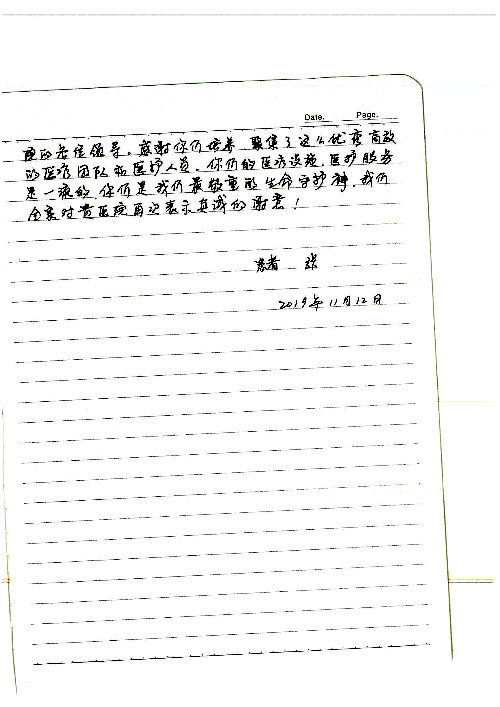 Date.    Page.
院的各位领导。感谢你们培养、聚集了这么优秀高效
的医疗团队和医护人员。你们的医疗设施、医护服务
是一流的，你们是我们最敬重的生命守护神。我们
全家对贵医院再次表示真诚的谢意！
患者 张
2019年11月12日